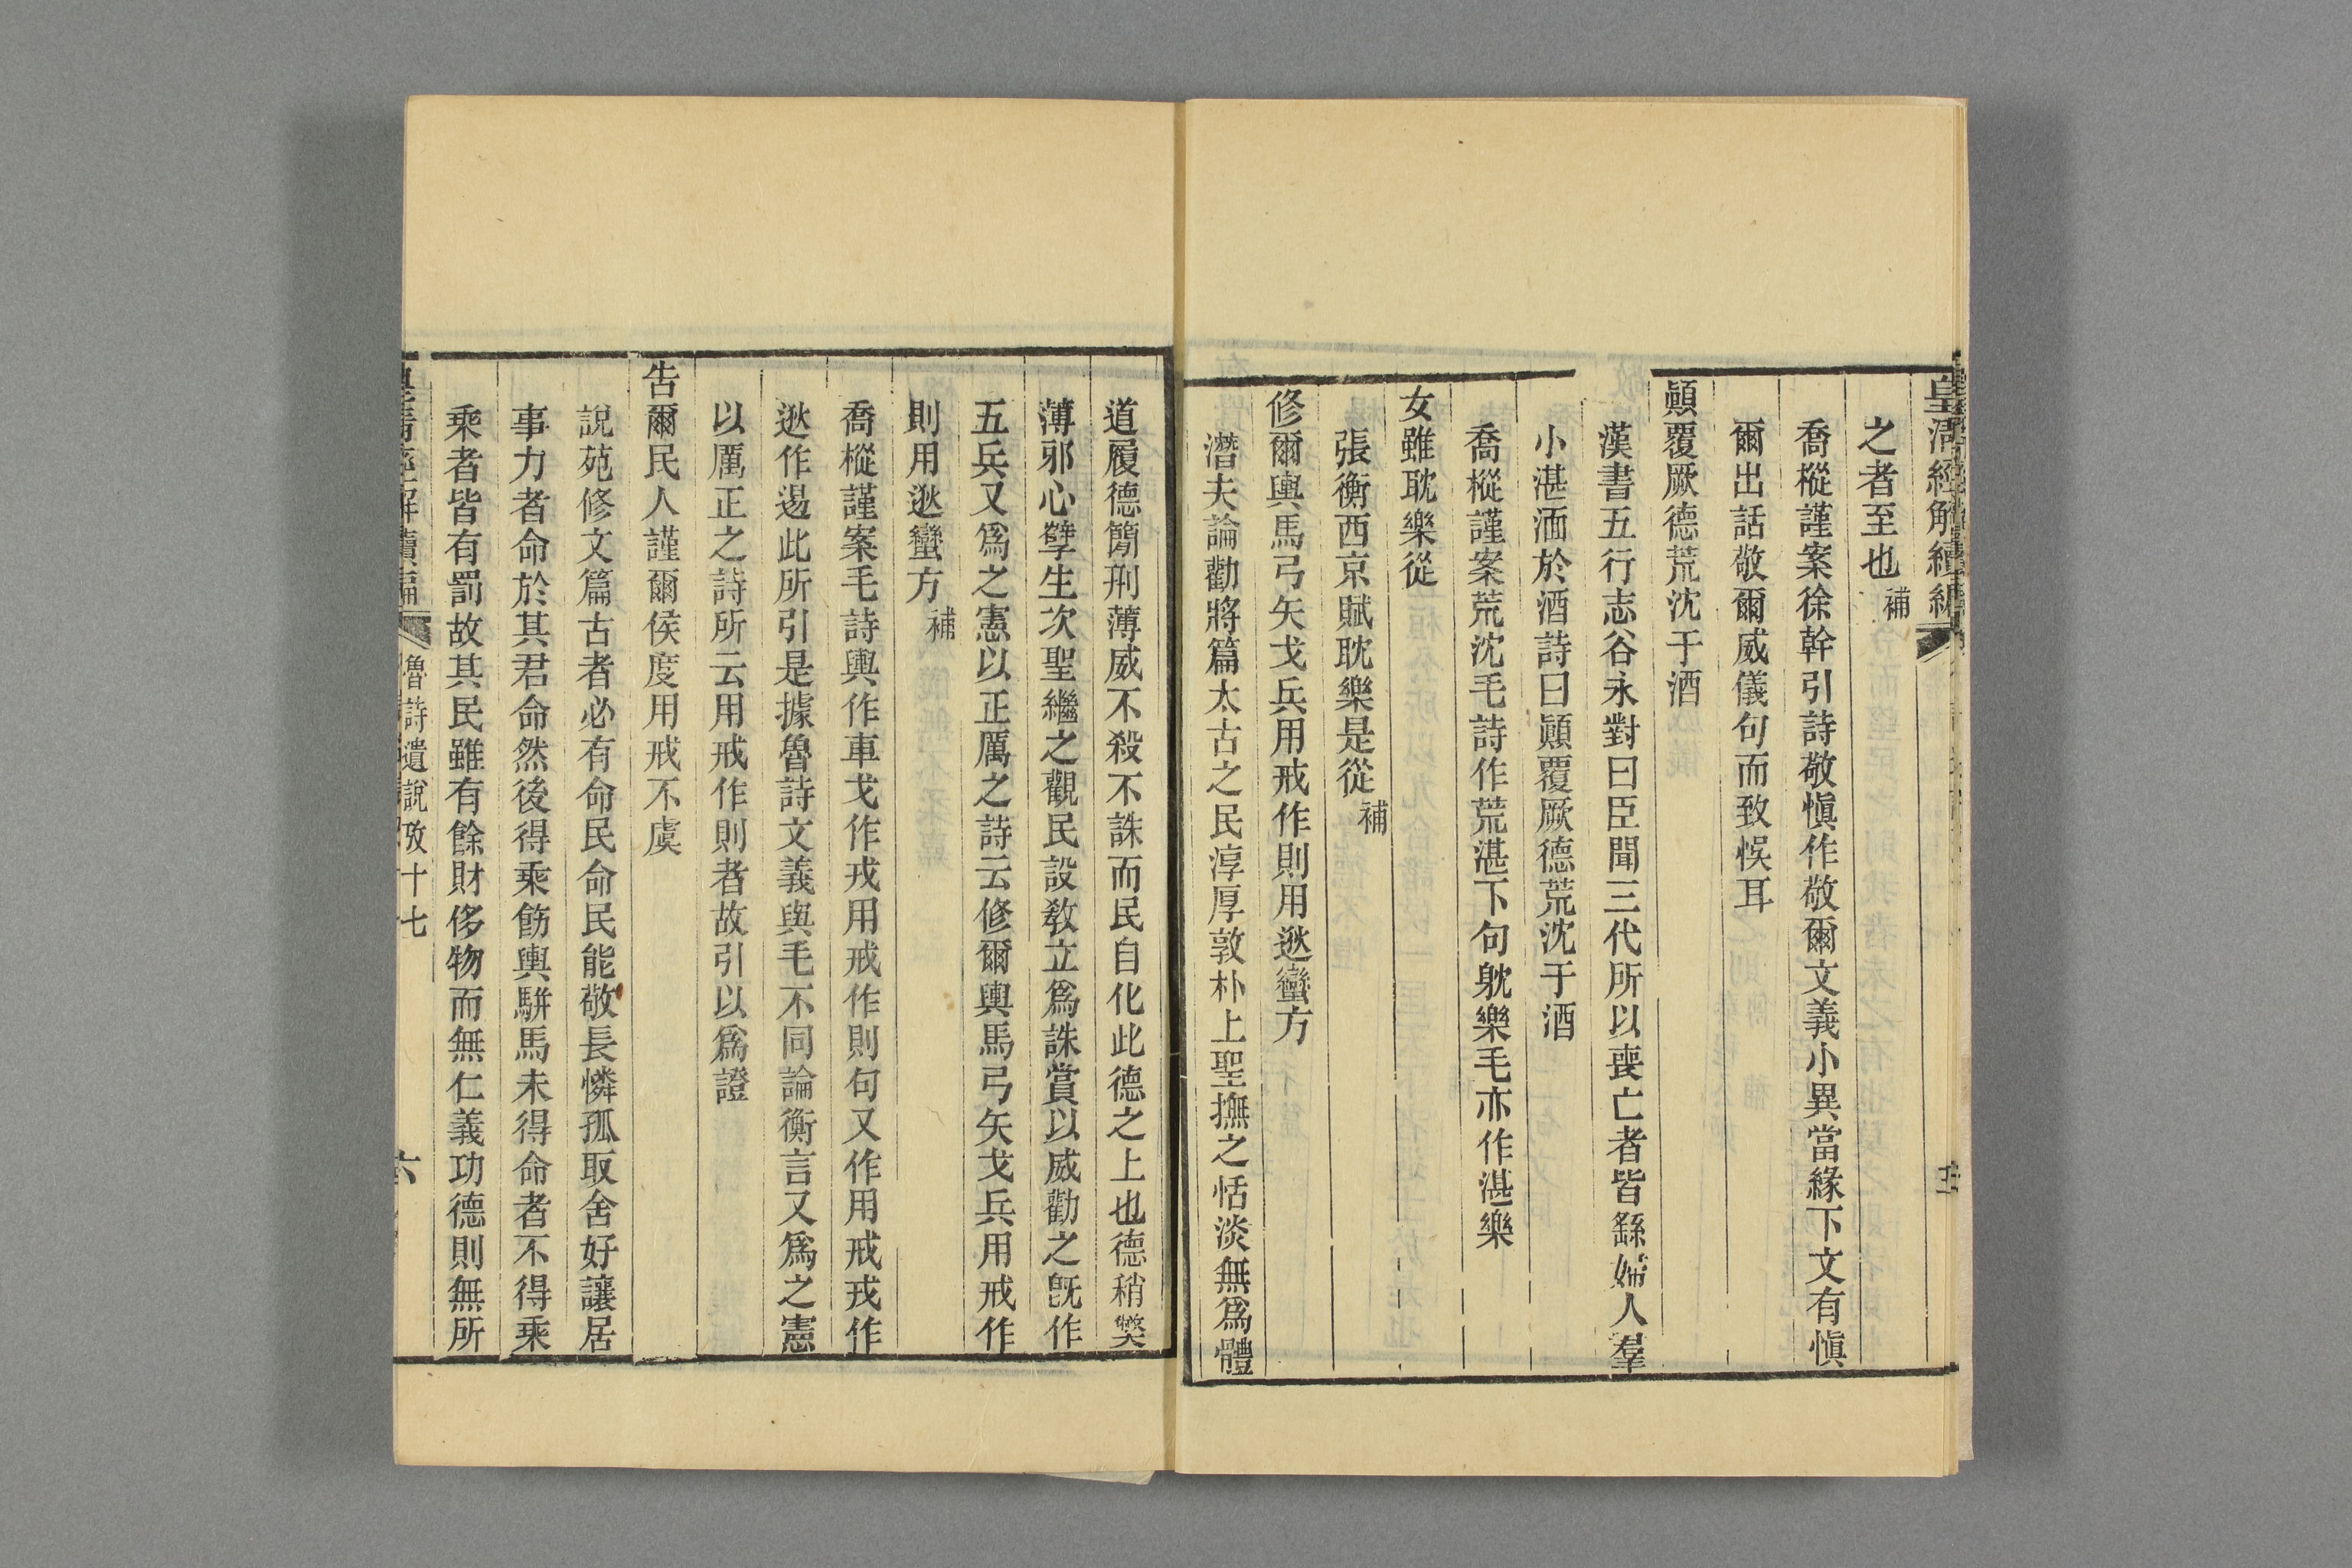 皇清經解續編
之者至也補
喬樅謹案徐幹引詩敬愼作敬爾文義小異當緣下文有愼
爾出話敬爾威儀句而致悞耳
顚覆厥德荒沈于酒
漢書五行志谷永對曰臣聞三代所以喪亡者皆繇婦人羣
小湛湎於酒詩曰顚覆厥德荒沈于酒
喬樅謹案荒沈毛詩作荒湛下句躭樂毛亦作湛樂
女雖耽樂從
張衡西京賦耽樂是從補
修爾輿馬弓矢戈兵用戒作則用逖蠻方
潛夫論勸將篇太古之民淳厚敦朴上聖撫之恬淡無爲體
道履德簡刑薄威不殺不誅而民自化此德之上也德稍獘
薄邪心孽生次聖繼之觀民設敎立爲誅賞以威勸之旣作
五兵又爲之憲以正厲之詩云修爾輿馬弓矢戈兵用戒作
則用逖蠻方補
喬樅謹案毛詩輿作車戈作戎用戒作則句又作用戒戎作
逖作逷此所引是據魯詩文義與毛不同論衡言又爲之憲
以厲正之詩所云用戒作則者故引以爲證
告爾民人謹爾侯度用戒不虞
說苑修文篇古者必有命民命民能敬長憐孤取舍好讓居
事力者命於其君命然後得乘飭輿駢馬未得命者不得乘
乘者皆有罰故其民雖有餘財侈物而無仁義功德則無所
皇清經解續編 魯詩遺說攷十七 六